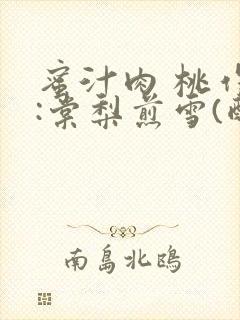 蜜汁肉桃
:棠梨煎雪(
南島北鴎